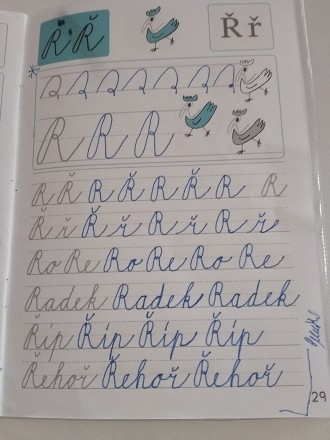 R Ř Ř ř
R R R
R Ř R Ř R Ř R R
Ř ř Ř ř R ř R ř
Ro Re Ro Re Ro Re
Radek Radek Radek
Říp Říp Říp Říp
Řehoř Řehoř Řehoř
29